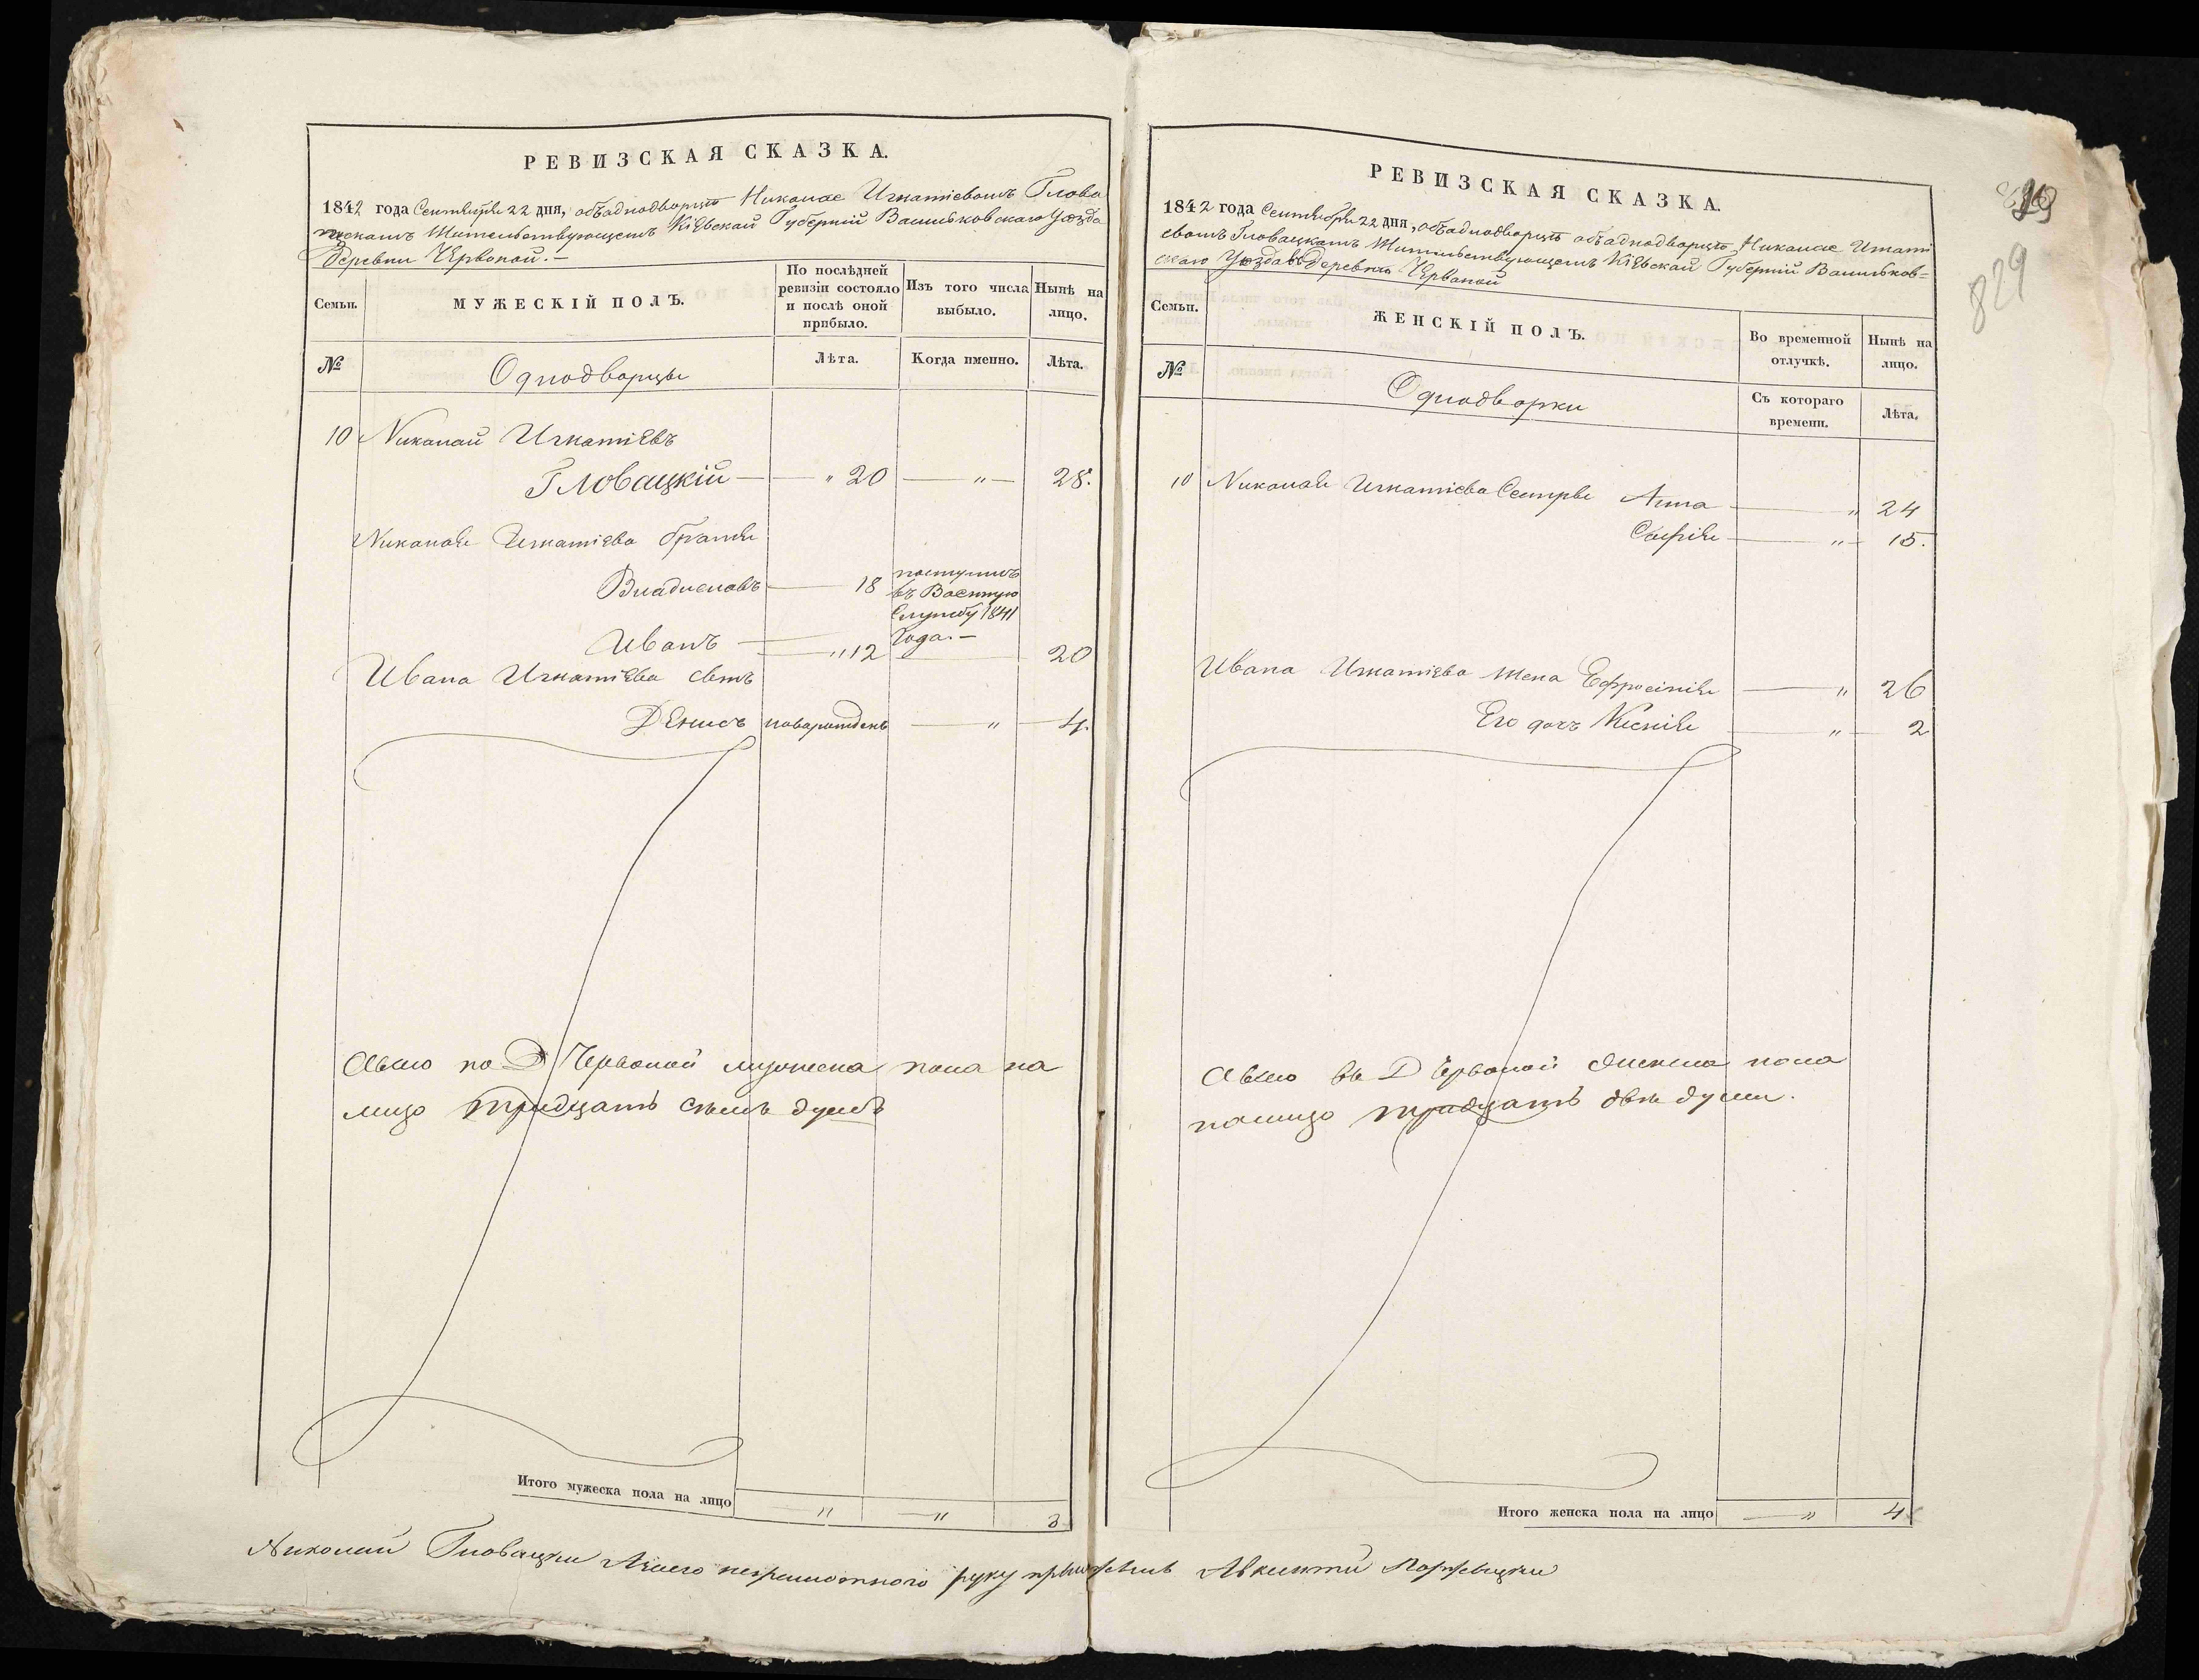 РЕВИЗСКАЯ СКАЗКА.
1842 года Сентября 22 дня, объ однодворцѣ Николае Игнатіевомъ Глова
цкомъ Жительствующемъ Кіевской Губерніи Васильковскаго Уѣзда
Деревни Червоной.–
Семьи.
МУЖЕСКІЙ ПОЛЪ.
По послѣдней ревизіи состояло и послѣ оной прибыло.
Изъ того числа выбыло.
Нынѣ на лицо.
№
Однодворцы
Лѣта.
Когда именно.
Лѣта.
10 Николай Игнатіевъ
Гловацкій — " 20 — " — 28.
Николая Игнатіева братья
Владиславъ — 18 поступилъ
въ Военную
Службу 1841
Года.–
Иванъ — " 12 — 20
Ивана Игнатіева сынъ
Денисъ новорожденъ — " — 4.
Авсего по Д Червоной мужеска пола на
лицо тридцать семь душъ
Итого мужеска пола на лицо — " — " 3
РЕВИЗСКАЯ СКАЗКА.
1842 года Сентября 22 дня, объ однодворцѣ объ однодворцѣ Николае Игнаті
евомъ Гловацкомъ Жительствующемъ Кіевской Губерніи Васильков=
скаго Уѣзда въ Деревнѣ Червоной
829
Семьи.
ЖЕНСКІЙ ПОЛЪ.
Во временной отлучкѣ.
Нынѣ на лицо.
№
Однодворки
Съ котораго времени.
Лѣта.
10 Николая Игнатіева Сестры Анна — " 24
Софія — " — 15.
Ивана Игнатіева жена Ефросинія — " 26
Его дочъ Ксенія — " — 2
Авсего въ Д Червоной женска пола
налицо тридцать двѣ души.
Итого женска пола на лицо — " 4
Николай Гловацки Азаего неграмотного руку приложилъ